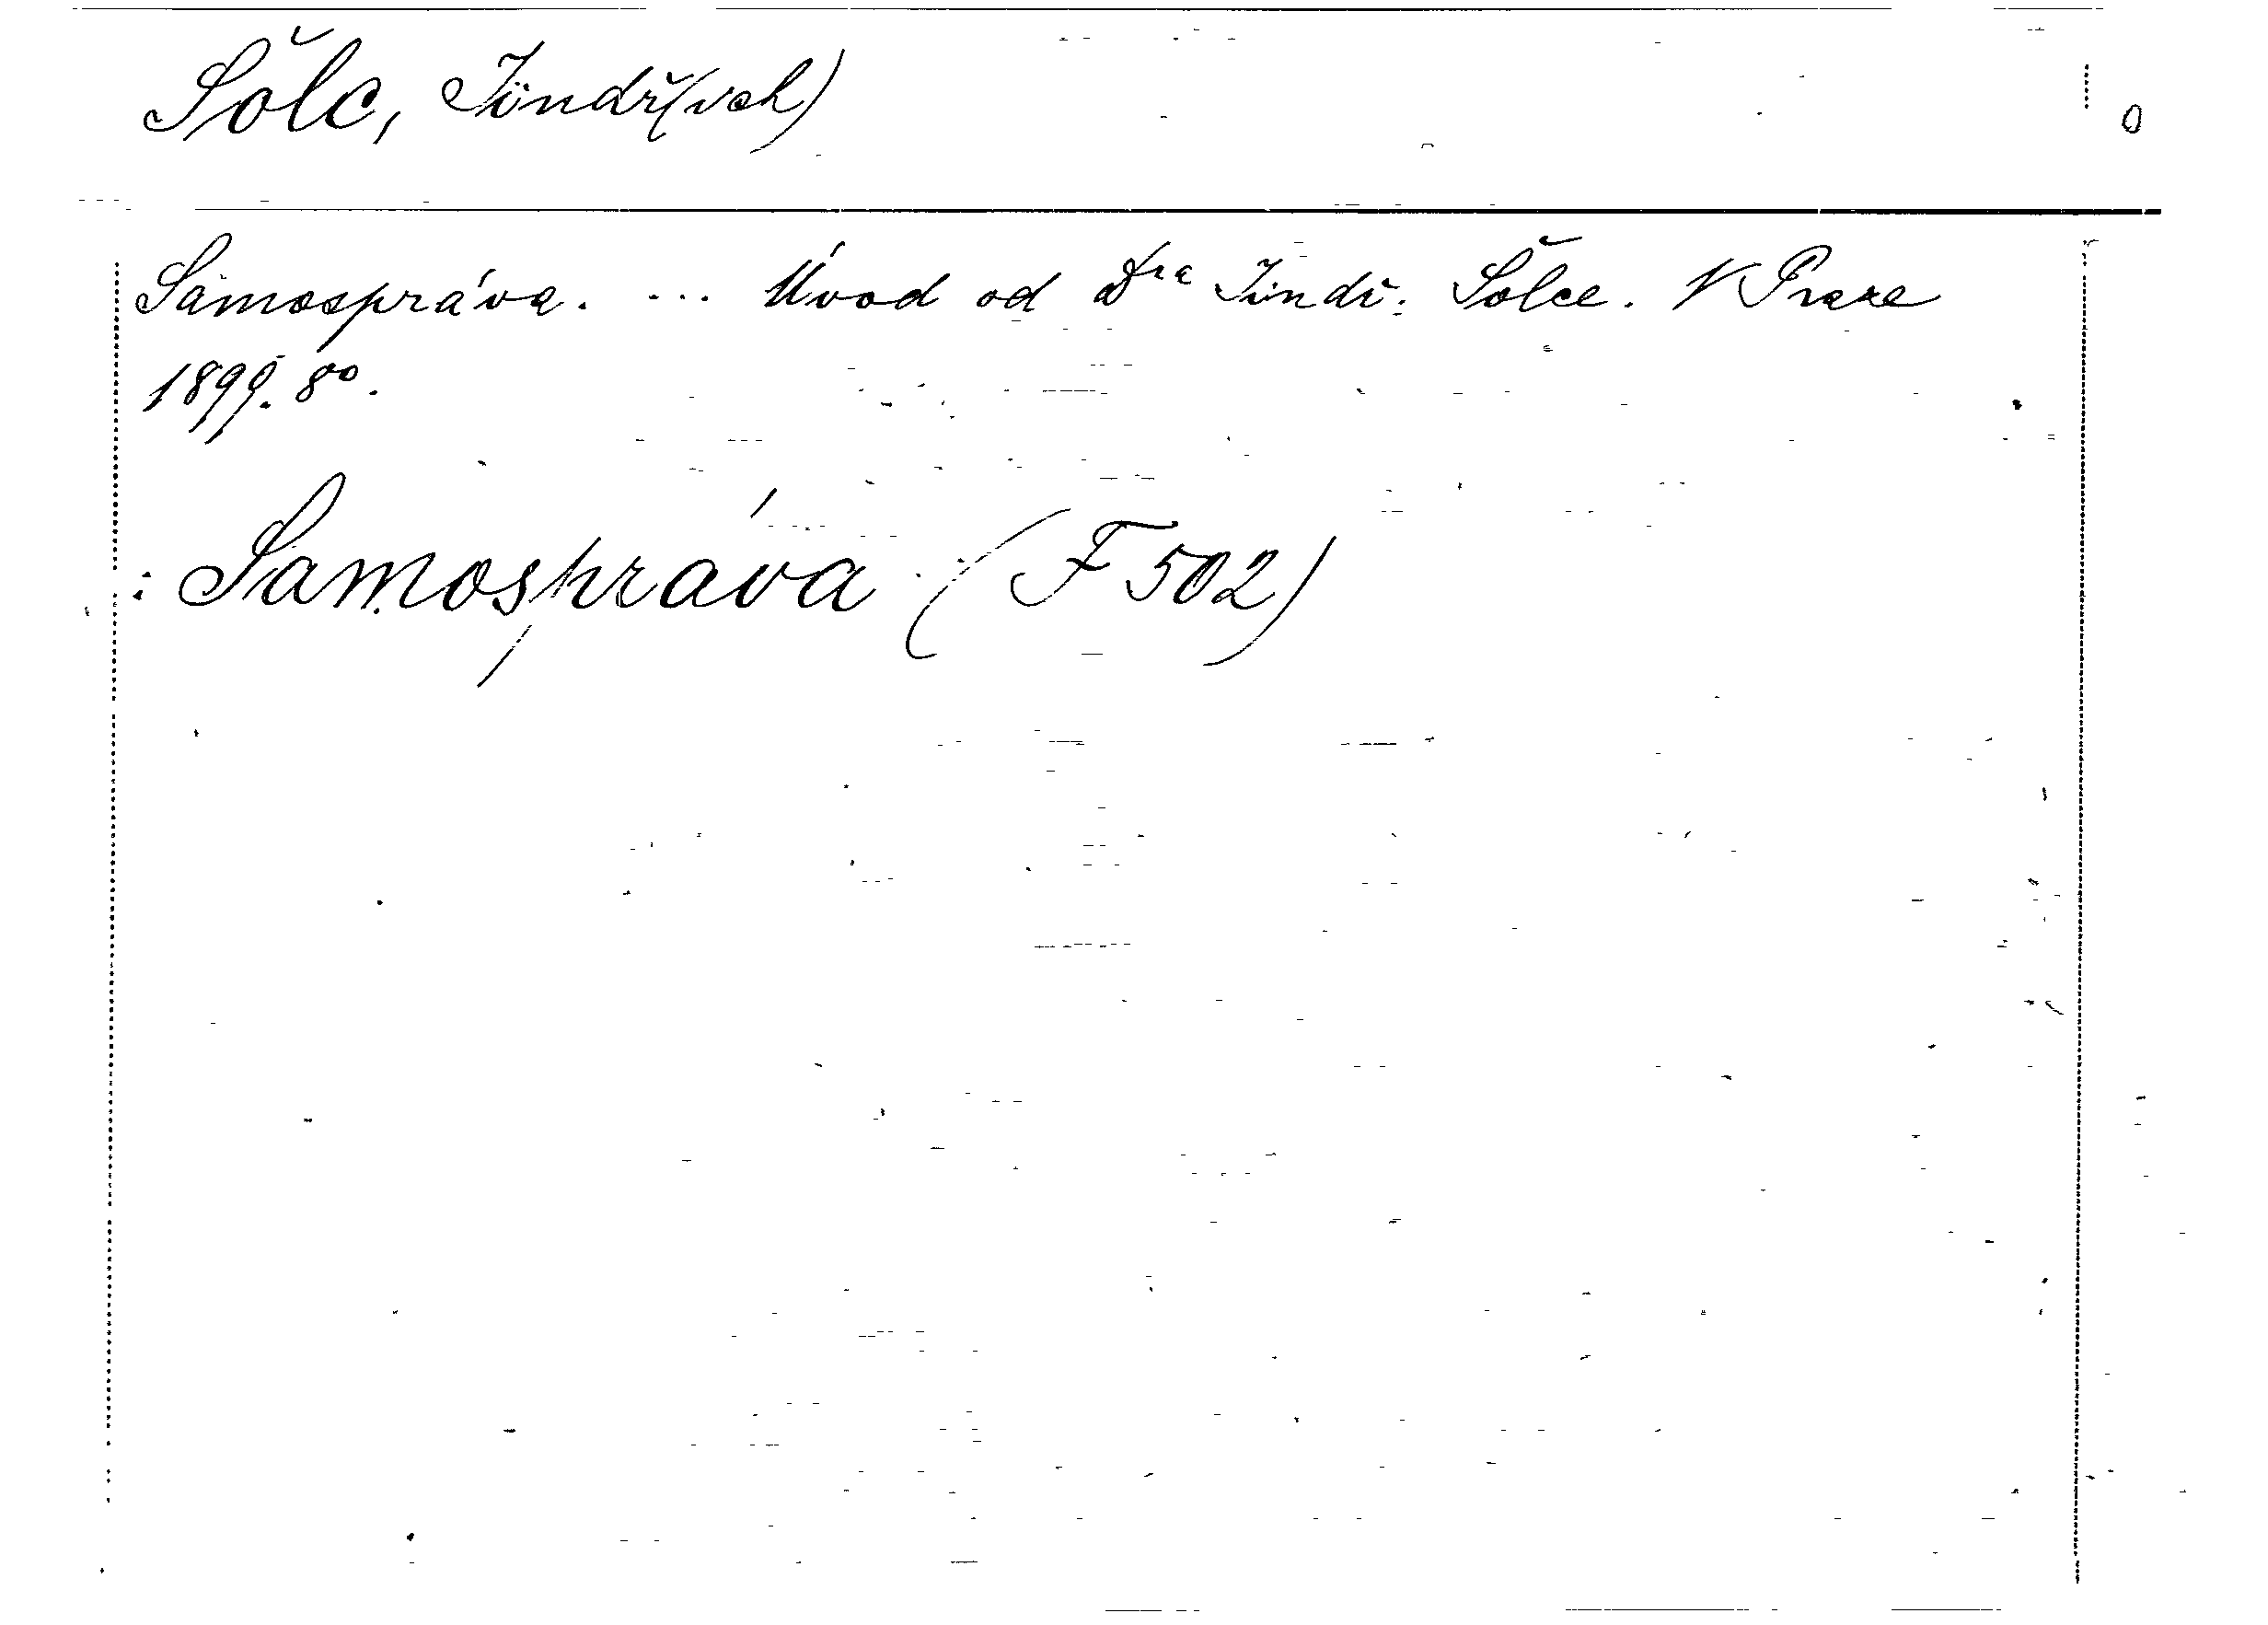 Šolc, Jindř(ich)
0
Samospráva. ... Úvod od Dra Jindř. Šolce. V Praze
1899. 8o.
: Samospráva (F 502)